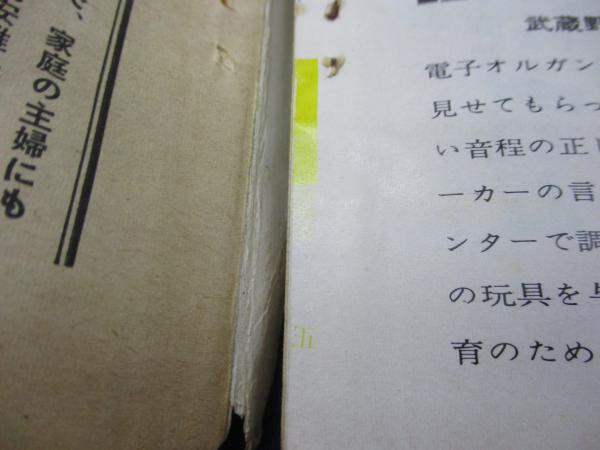 で、家庭の主婦にも
武蔵野
電子オルガン
見せてもらっ
い音程の正し
ーカーの言
ンターで調
の玩具を与
育のため